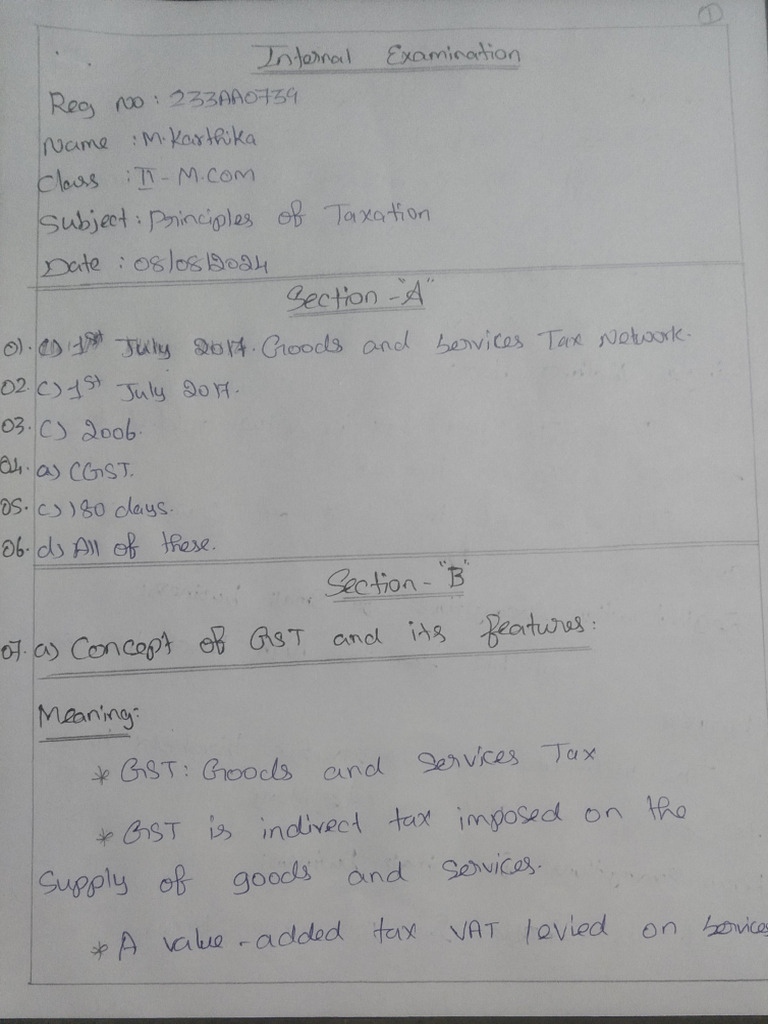 1
Internal Examination
Reg no : 233AA0739
Name : M.Karthika
Class : II - M.COM
Subject : Principles of Taxation
Date : 08/08/2024
Section - "A"
01. Goods and Services Tax Network.
02. c) 1st July 2017.
03. c) 2006.
04. a) CGST.
05. c) 180 days.
06. d) All of these.
Section - "B"
07. a) Concept of GST and its features:
Meaning:
* GST: Goods and Services Tax
* GST is indirect tax imposed on the
Supply of goods and services.
* A value - added tax VAT levied on services